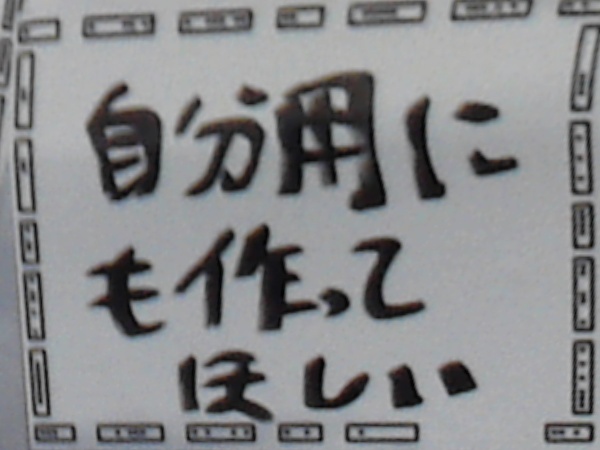 自分用に
も作って
ほしい